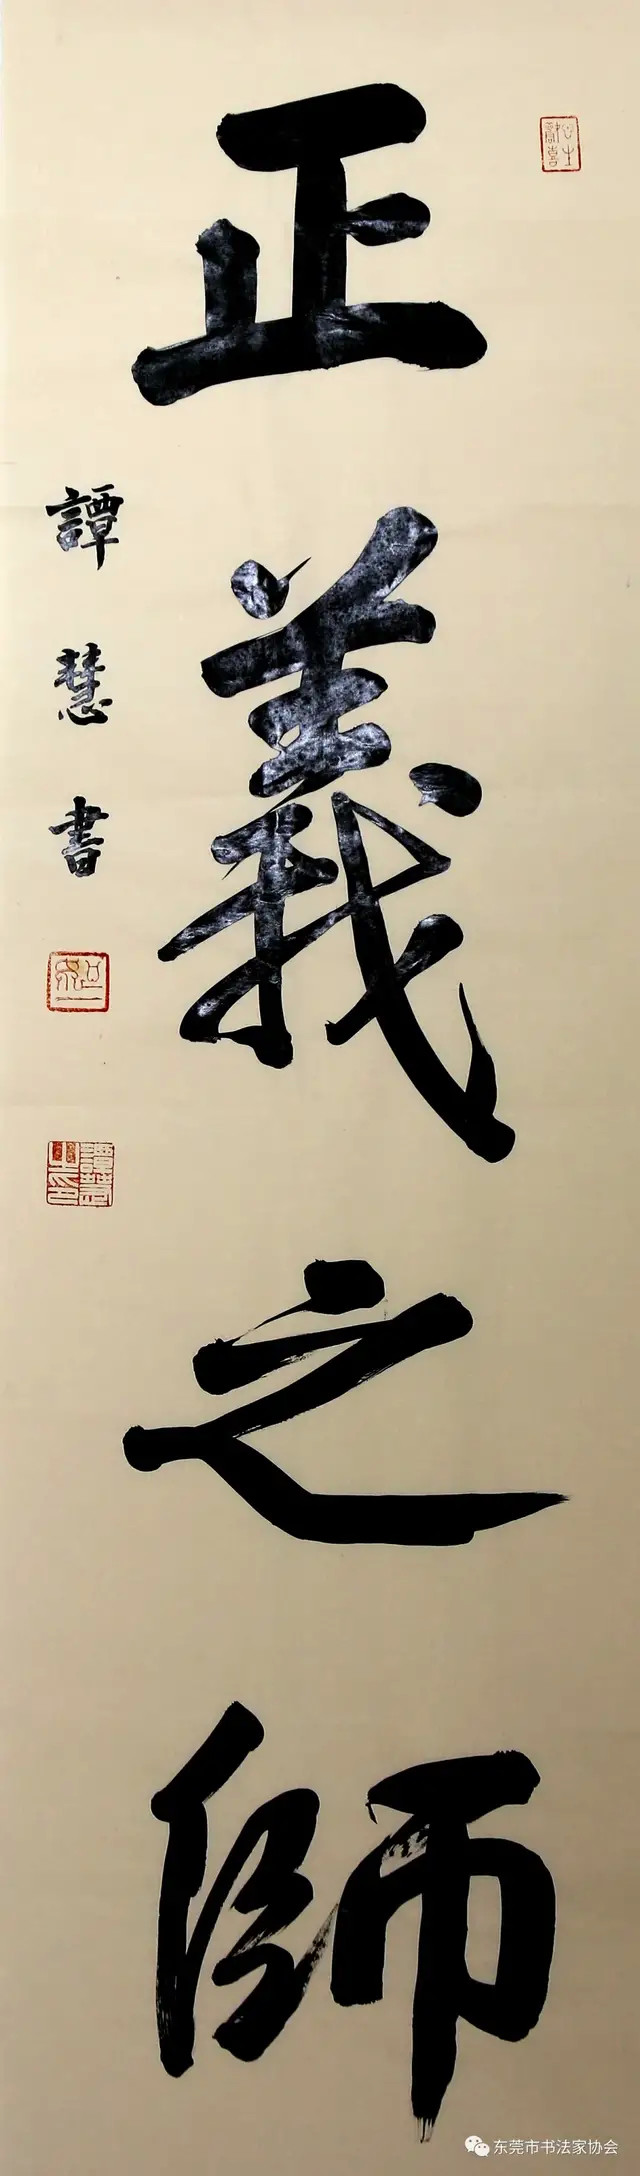 正義之師
譚慧書
东莞市书法家协会